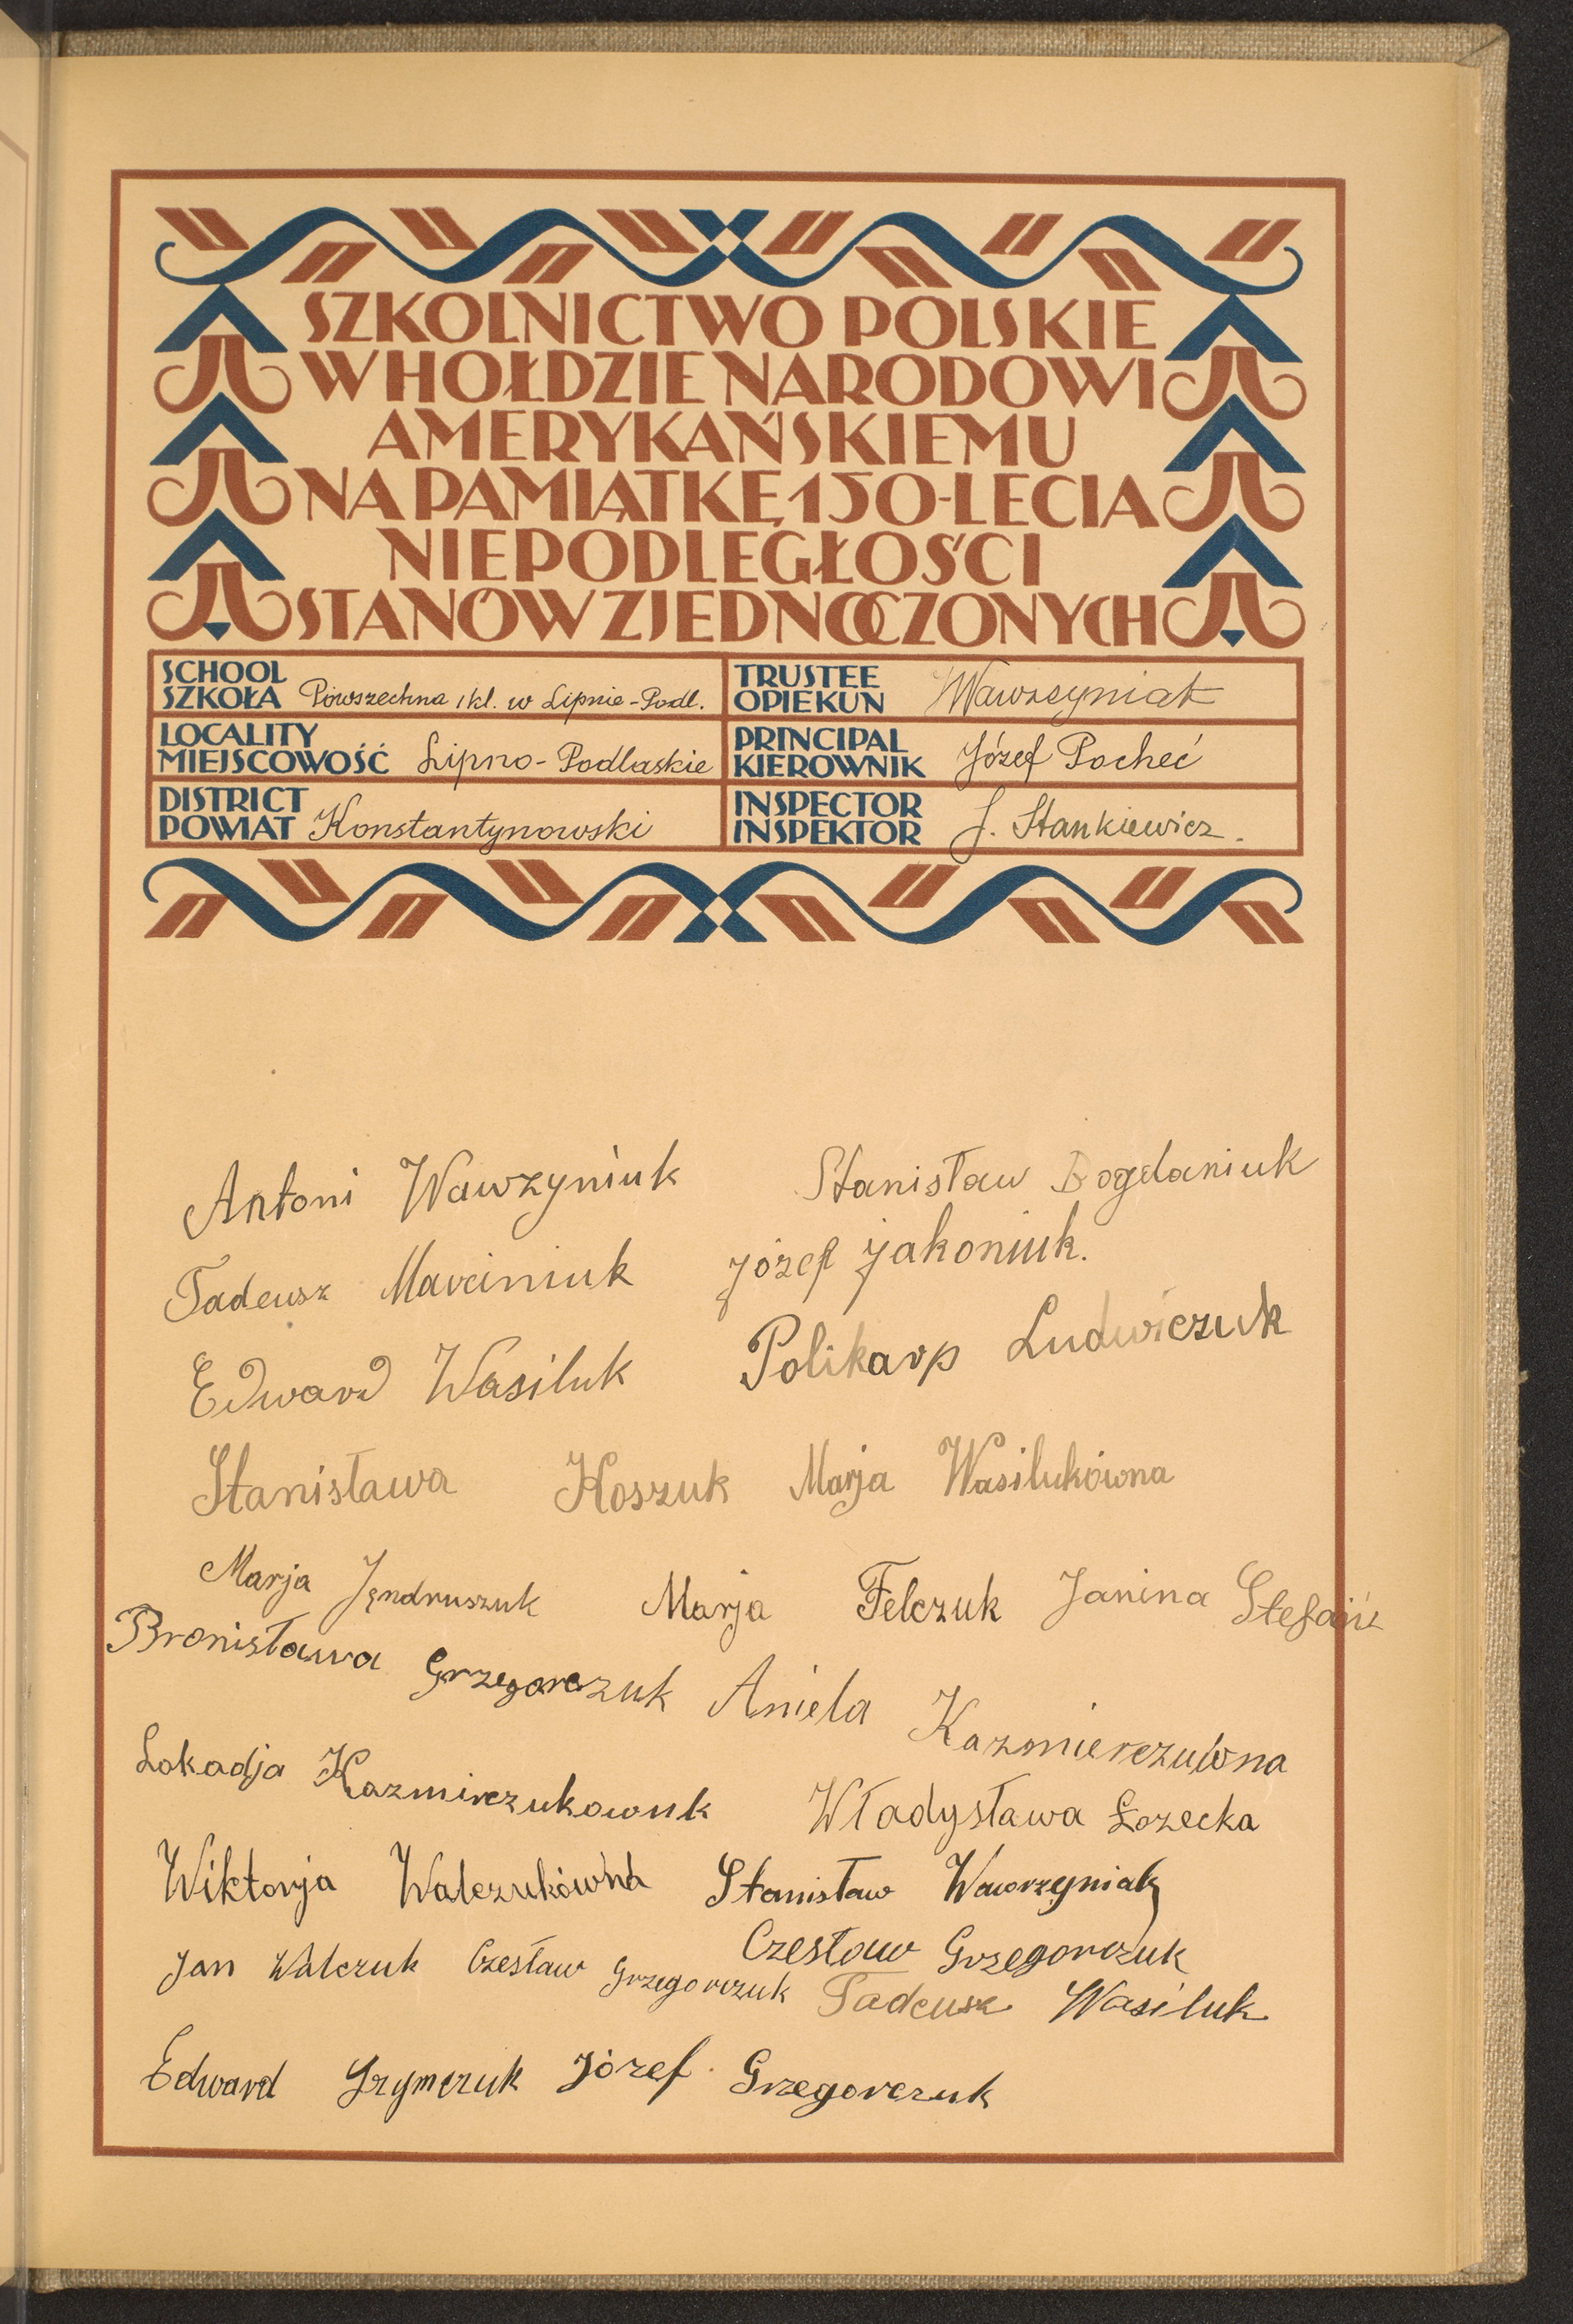 SZKOLNICTWO POLSKIE
W HOŁDZIE NARODOWI
AMERYKAŃSKIEMU
NA PAMIĄTKĘ 150-LECIA
NIEPODLEGŁOŚCI
STANÓW ZJEDNOCZONYCH
SCHOOL
SZKOŁA Powszechna 1 kl. w Lipnie-Podl.
TRUSTEE
OPIEKUN Wawrzyniak
LOCALITY
MIEJSCOWOŚĆ Lipno-Podlaskie
PRINCIPAL
KIEROWNIK Józef Pocheć
DISTRICT
POWIAT Konstantynowski
INSPECTOR
INSPEKTOR J. Stankiewicz.
Antoni Wawzyniuk Stanisław Bogdaniuk
Tadeusz Marciniuk Józef Jakoniuk.
Edward Wasiluk Polikarp Ludwiczuk
Stanisława Koszuk Marja Wasilukówna
Marja Jęndruszuk Marja Felczuk Janina
Bronisława Grzegorczuk Aniela Kazmierczuwna
Lokadja Kazmirczukownk Władysława Łozecka
Wiktorja Walczukówna Stanisław Wawrzyniak
Jan Walczuk Czesław Grzegorczuk Czesław Grzegorczuk
Tadeusz Wasiluk
Edward Szymczuk Józef Grzegorczuk